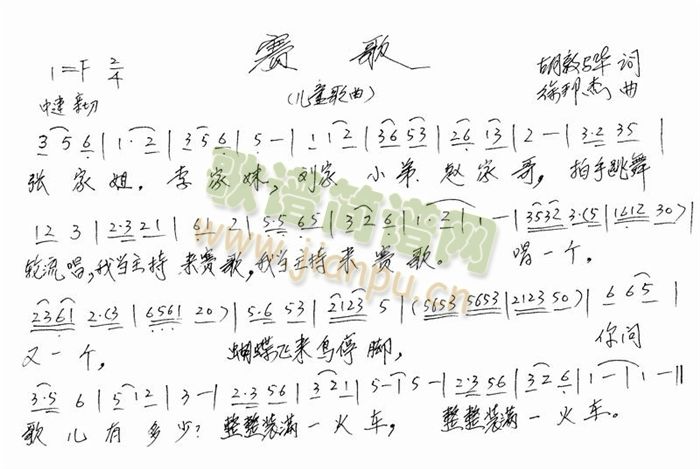 赛 歌
1=F 2/4
(儿童歌曲)
词
中速 亲切
徐邦杰 曲
3 5 6 | 1· 2 | 3 5 6 | 5 - | 1 1 2 | 3 6 5 3 | 2 6 1 3 | 2 - | 3·2 3 5 |
张 家 姐, 李 家 妹, 刘家 小 弟 赵 家 哥, 拍手跳舞
1 2 3 | 2·3 2 1 | 6 2 | 5·5 6 5 | 3 2 6 | 1· 2 | 1 - | 3532 3·(5 | 1612 30) |
轮流唱,我当主持 来赛歌,我当主持 来 赛 歌。 唱 一 个,
2361 2·(3 | 6561 20) | 5·6 53 | 2123 5 | (5653 5653 | 2123 50) | 6 6 5 |
又 一 个, 蝴蝶飞来鸟停脚, 你问
3·5 6 | 5 1 2 | 3 - | 2·3 5 6 | 3 2 1 | 5 - | 5 - | 2·3 5 6 | 3 2 6 | 1 - | 1 - ‖
歌 儿 有 多 少? 整整装满 一 火 车, 整整装满 一 火 车。
歌谱简谱网
www.jianpu.cn